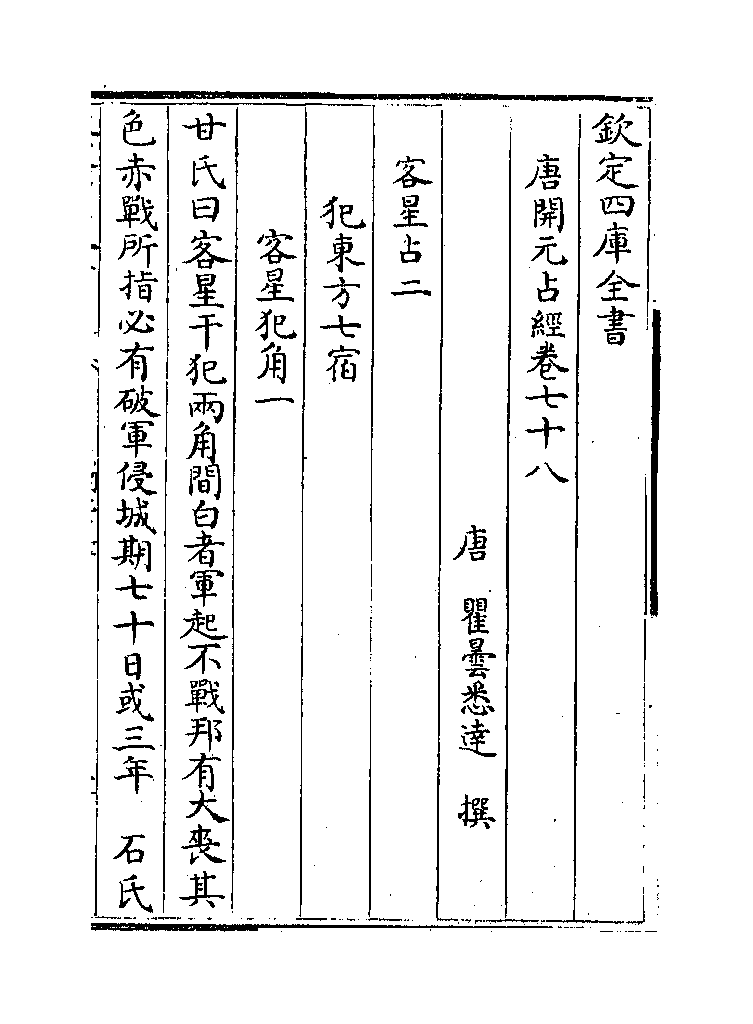 欽定四庫全書
唐開元占經卷七十八
唐　瞿曇悉達　撰
客星占二
犯東方七宿
客星犯角一
甘氏曰客星干犯兩角間白者軍起不戰邦有大喪其
色赤戰所指必有破軍侵城期七十日或三年　石氏